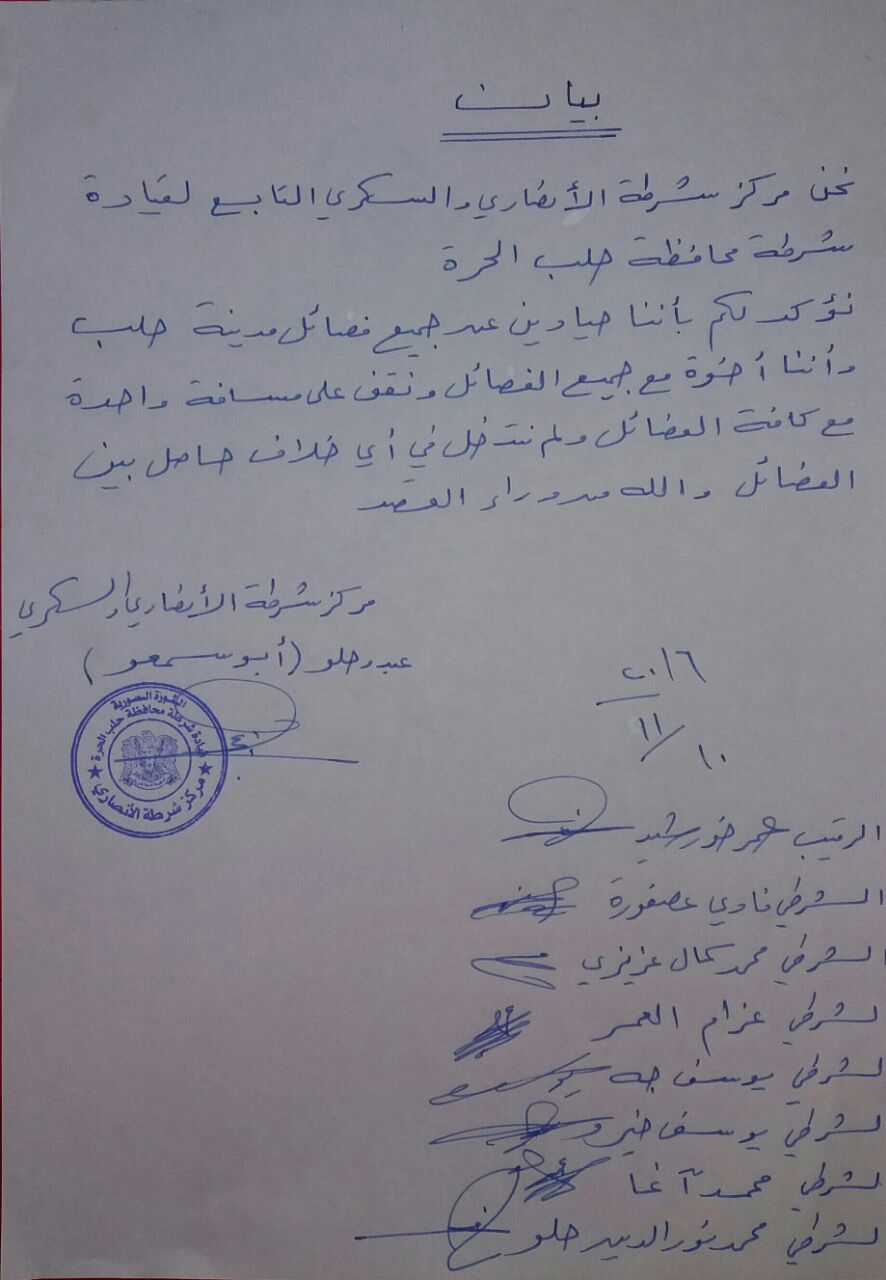 بيان
نحن مركز شرطة الأنصاري والسكري التابع لقيادة
شرطة محافظة حلب الحرة
نؤكد لكم بأننا حيادين عن جميع فصائل مدينة حلب
وأننا أخوة مع جميع الفصائل ونقف على مسافة واحدة
مع كافة الفصائل ولم نتدخل في أي خلاف حاصل بين
الفصائل والله من وراء القصد
مركز شرطة الأنصاري والسكري
عبدو حلو (أبو سمعو)
٢٠١٦
١١/١٠
الثورة السورية
قيادة شرطة محافظة حلب الحرة
مركز شرطة الأنصاري
الرقيب عمر خورشيد
الشرطي فادي عصفورة
الشرطي محمد كمال عزيزي
الشرطي عزام العمر
الشرطي يوسف جه
الشرطي يوسف خيرو
الشرطي محمد آغا
الشرطي محمد نور الدين حلو